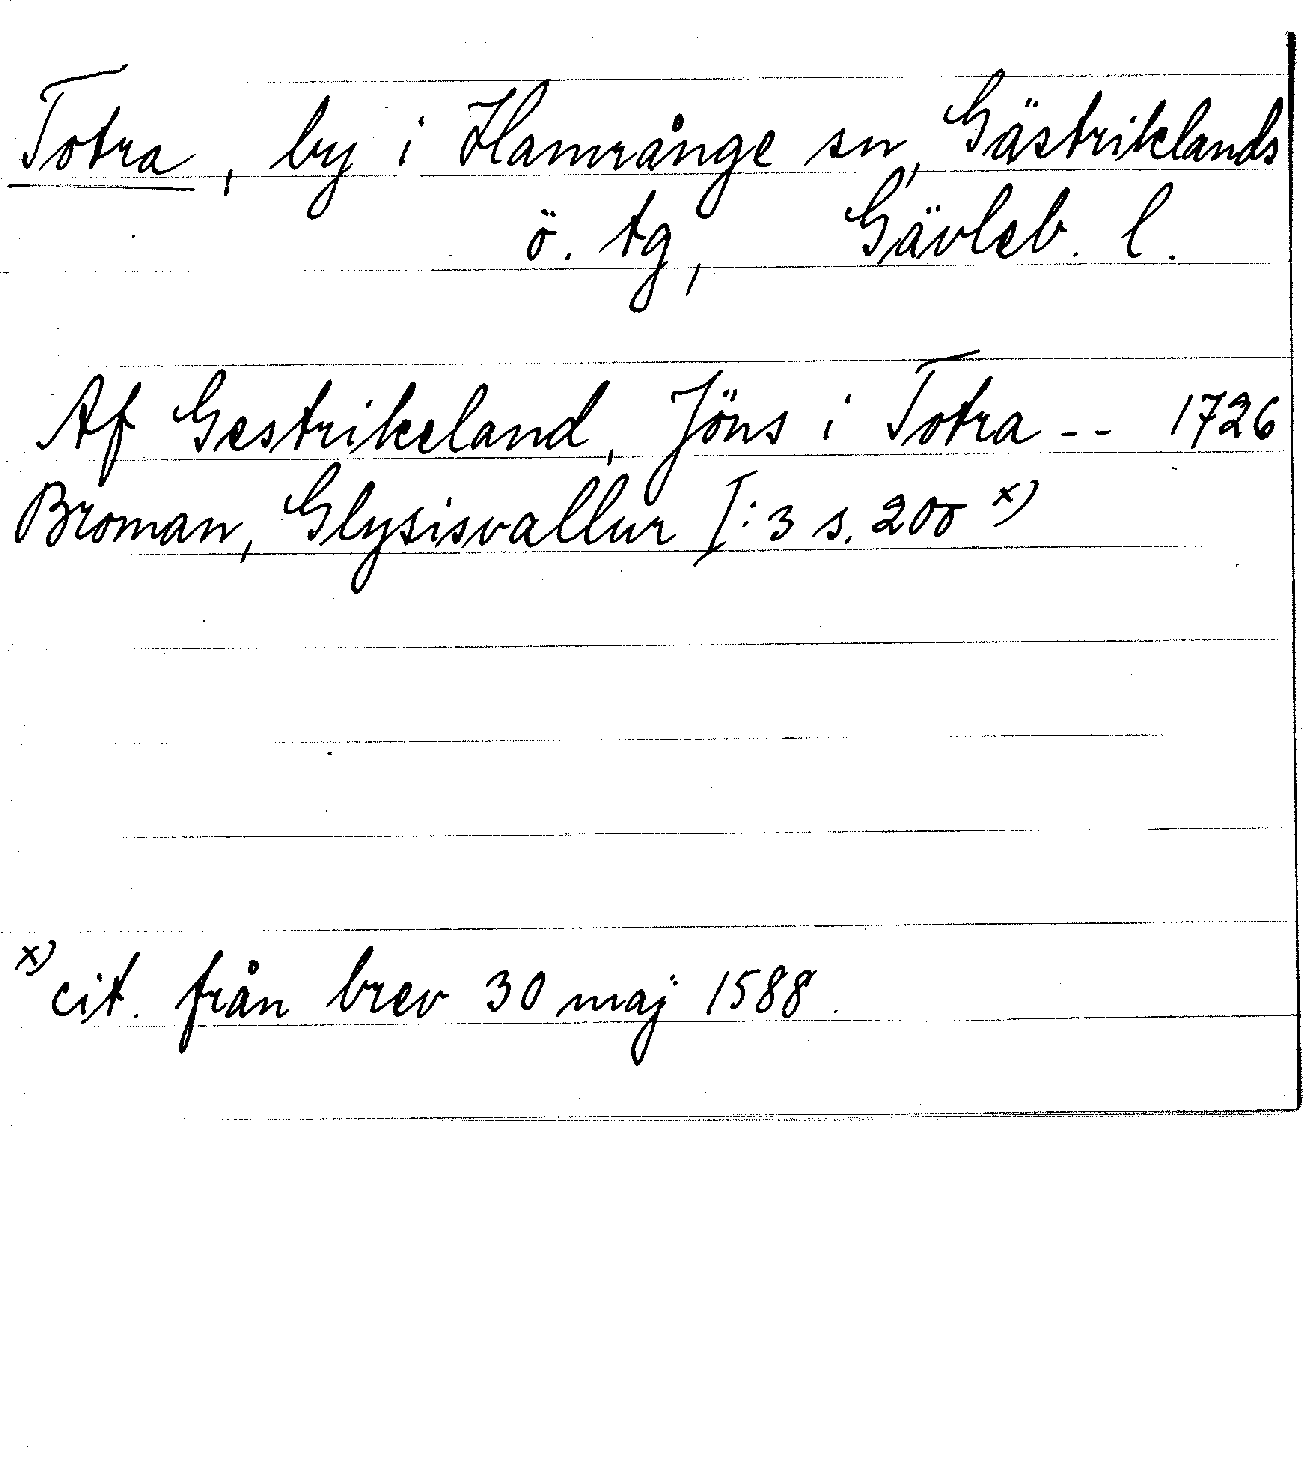 Totra, by i Hamrånge sn, Gästriklands
ö. tg, Gävleb. l.
Af Gestrikeland, Jöns i Totra -- 1726
Broman, Glysisvallur I:3 s. 200 x)
x) cit. från brev 30 maj 1588.